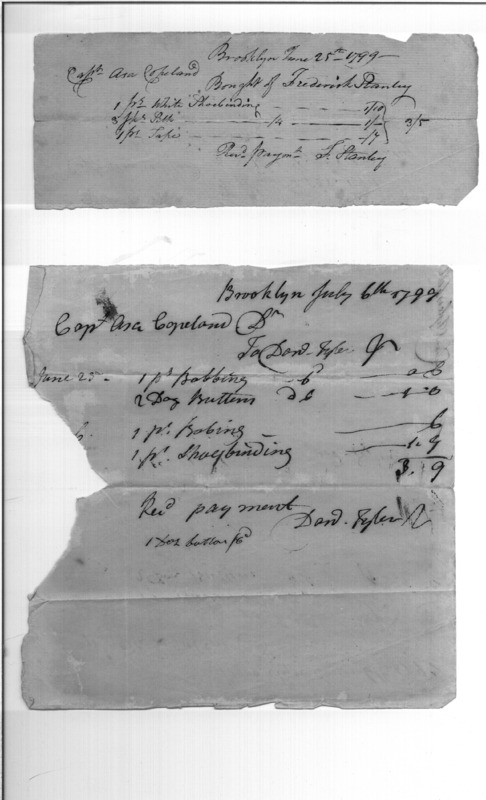 Brooklyn June 25th 1799
Capt. Asa Copeland
Bought of Frederick Stanley
1 ps. White Shoebinding — 1/10
— /4 — 1/-
1 ps. Tape — /7
3/5
Recd. paymt. F. Stanley
Brooklyn July 6th 1799
Capt. Asa Copeland Dr
To Dand. Tyler Jr
June 25 - 1 ps Bobbing 6 — 0 6
2 Doz Buttons d6 — 1-0
1 ps. Bobing — 6
1 ps. Shoe binding — 1.9
3.9
Recd payment
Dand. Tyler Jr
1 Doz button